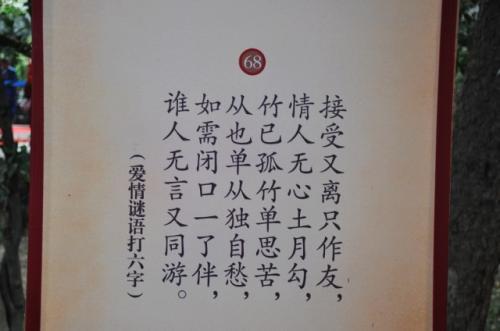 68
接受又离只作友，
情人无心土月勾，
竹已孤竹单思苦，
从也单从独自愁，
如需闭口一了伴，
谁人无言又同游。
（爱情谜语打六字）